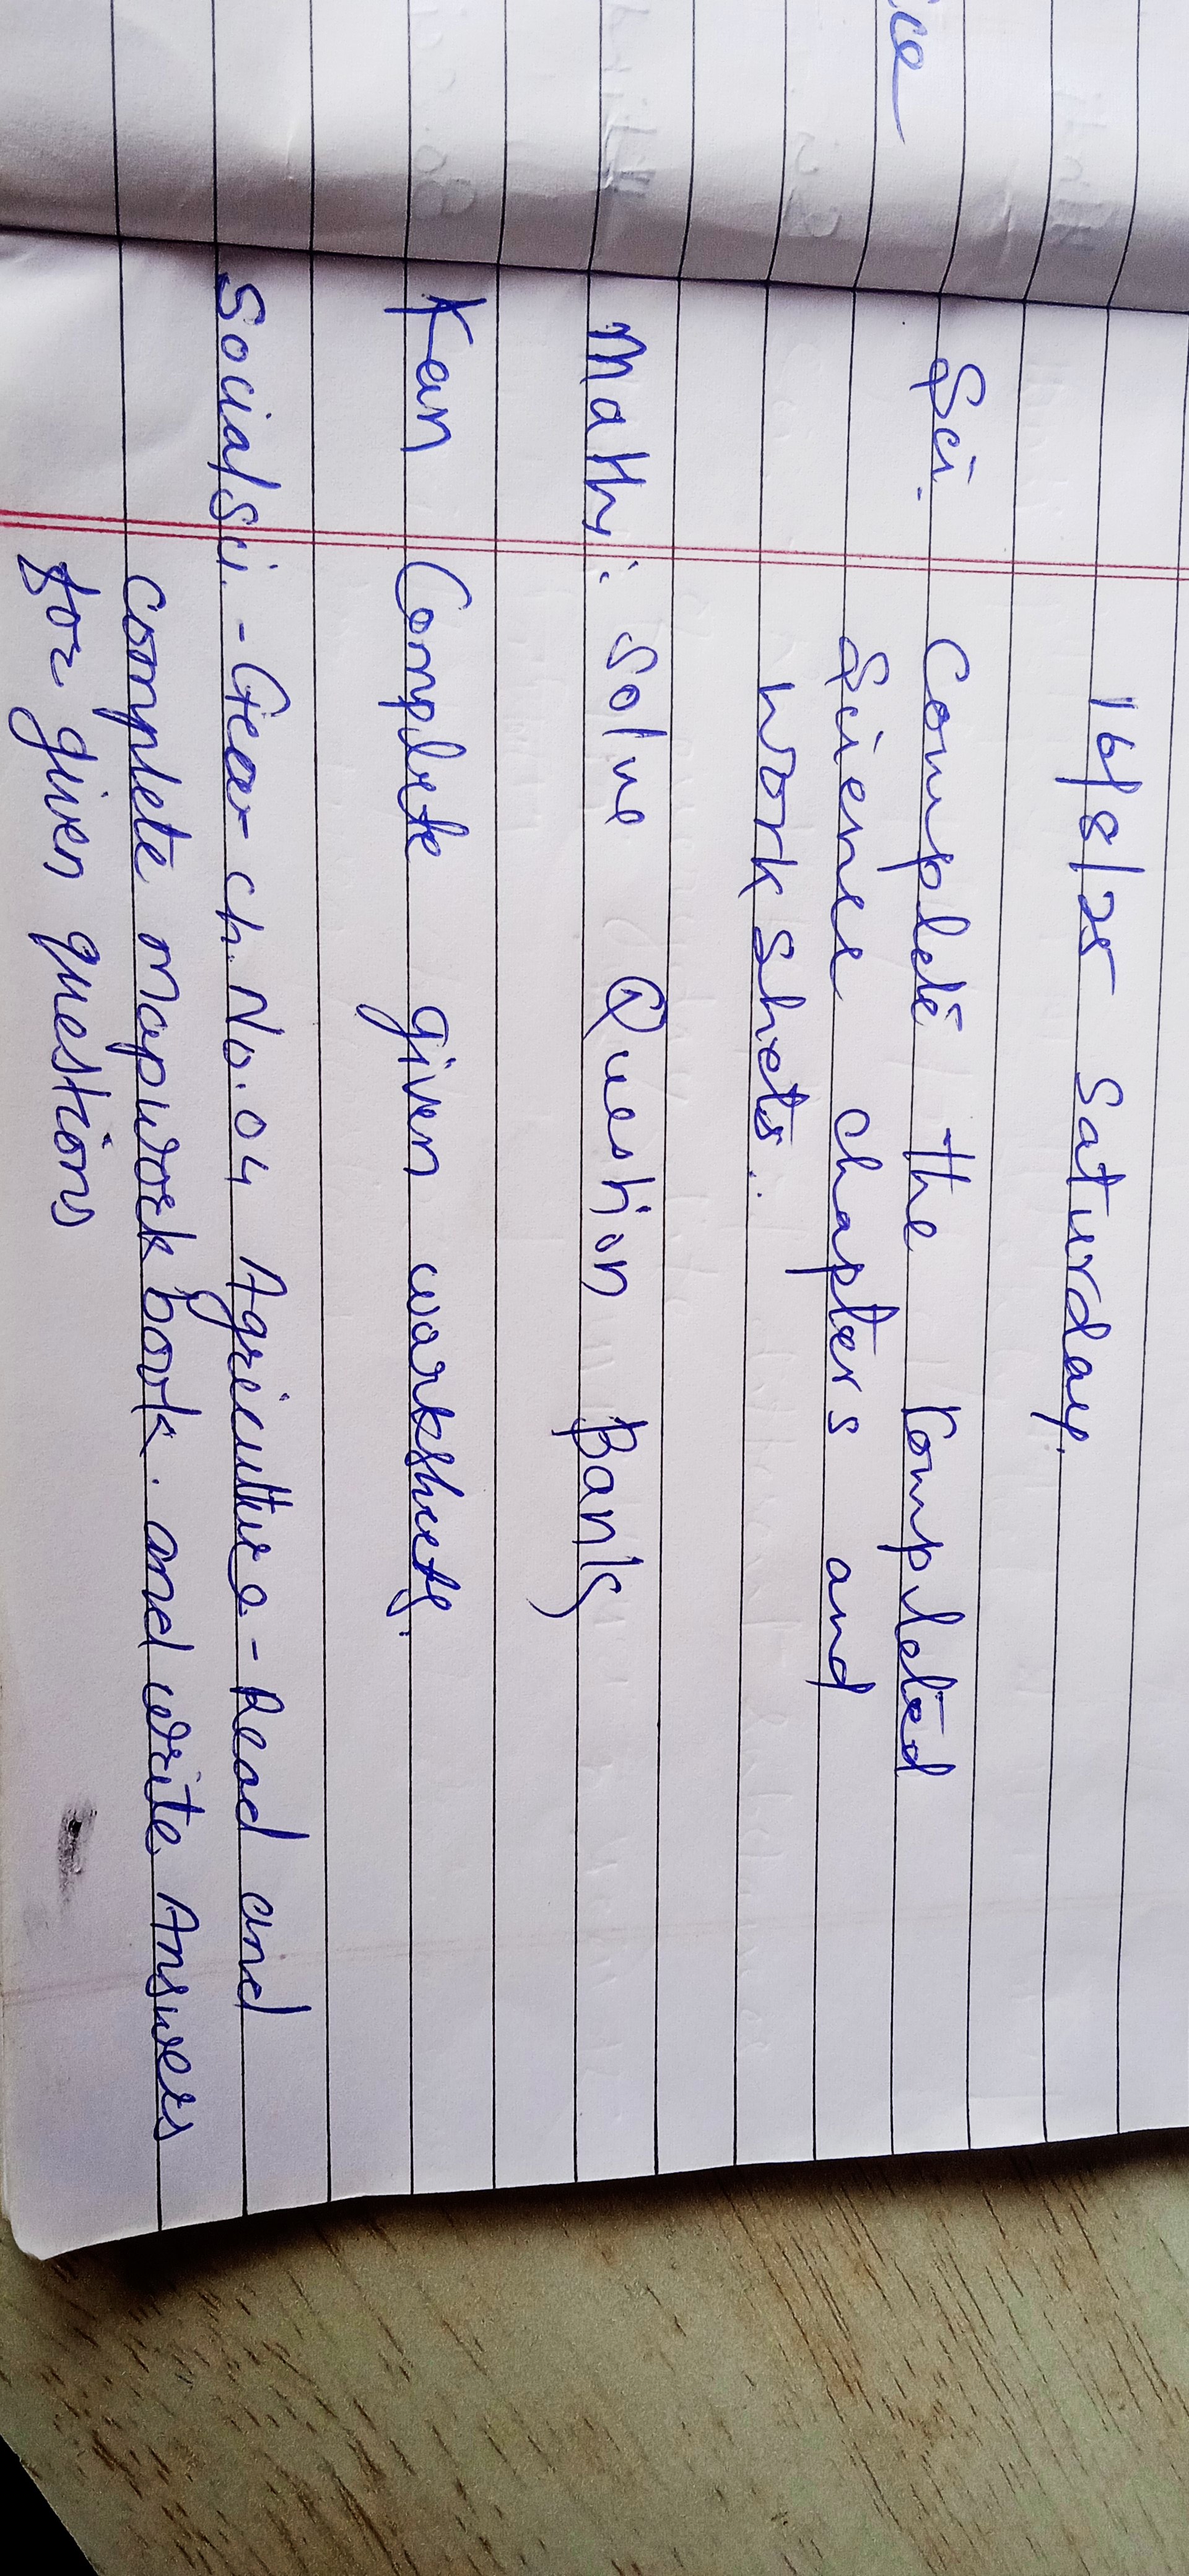 ice
16/8/25 Saturday.
Sci. Complete the completed
Science chapters and
work shets.
Math: Solve Question Bank
Kan Complete given worksheets.
Social Sci. - Geo ch. No. 04 Agriculture - Read and
complete mapworkbook. and write Answers
for given questions